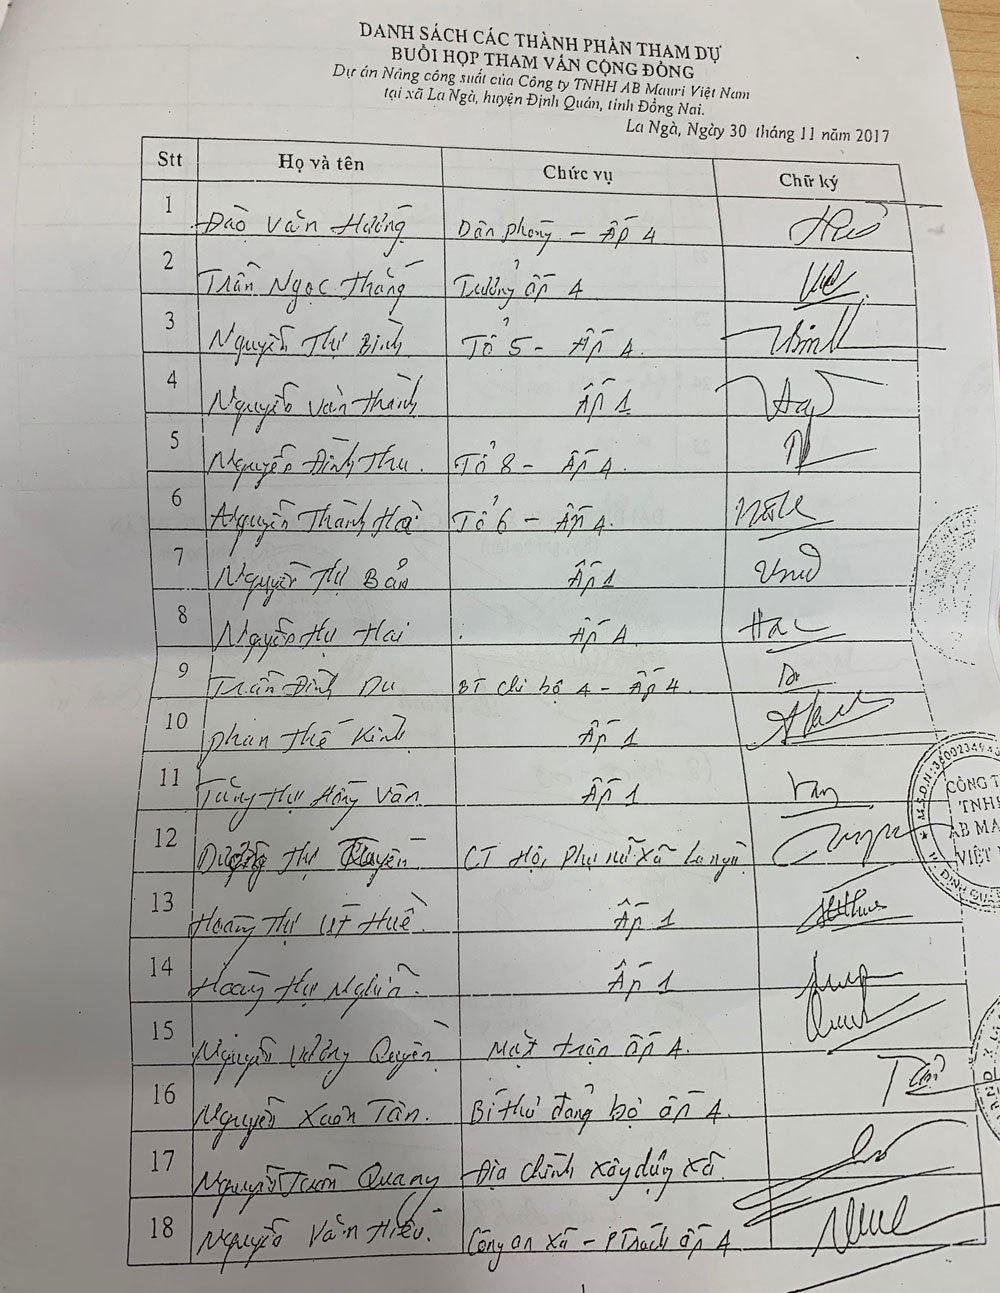 DANH SÁCH CÁC THÀNH PHẦN THAM DỰ
BUỔI HỌP THAM VẤN CỘNG ĐỒNG
Dự án Nâng công suất của Công ty TNHH AB Mauri Việt Nam
tại xã La Ngà, huyện Định Quán, tỉnh Đồng Nai.
La Ngà, Ngày 30 tháng 11 năm 2017
Stt Họ và tên Chức vụ Chữ ký
1 Đào Văn Hướng Dân phòng - Ấp 4
2 Trần Ngọc Thắng Trưởng ấp 4
3 Nguyễn Thị Bình Tổ 5 - Ấp 4.
4 Nguyễn Văn Thành Ấp 1
5 Nguyễn Đình Thu. Tổ 8 - Ấp 4.
6 Nguyễn Thanh Hà Tổ 6 - Ấp 4.
7 Nguyễn Thị Bản Ấp 1
8 Nguyễn Thị Hai Ấp 4
9 Trần Đình Du BT chi bộ 4 - Ấp 4.
10 Phan Thế Kình Ấp 1
11 Tăng Thị Hồng Vân Ấp 1
12 Dương Thị Quyên CT Hội Phụ nữ xã La ngà
13 Hoàng Thị Út Huề. Ấp 1
14 Hoàng Thị Nghĩa. Ấp 1
15 Nguyễn Vương Quyền Mặt trận ấp 4.
16 Nguyễn Xuân Tân. Bí thư đảng bộ ấp 4.
17 Nguyễn Tuấn Quang Địa chính xây dựng xã
18 Nguyễn Văn Hiếu. Công an xã - P Trách ấp 4
CÔNG T
TNH
AB MA
VIỆT